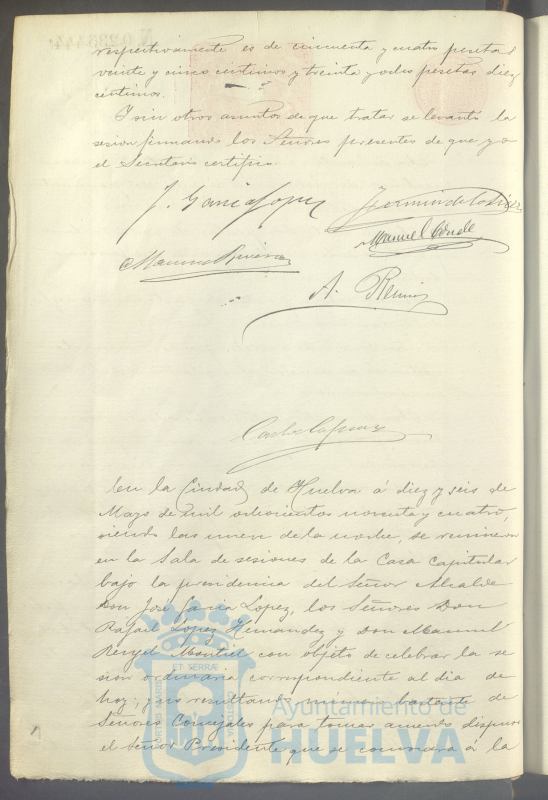 respectivamente es de cincuenta y cuatro pesetas
veinte y cinco centimos y treinta y ocho pesetas diez
centimos.
Y sin otros asuntos de que tratar se levantó la
sesion firmando los Señores presentes de que yo
el Secretario certifico.
J. Garcia Lopez
Fermin de la
Manuel Conde
A.
En la Ciudad de Huelva á diez y seis de
Mayo de mil ochocientos noventa y cuatro,
siendo las nueve de la noche, se reunieron
en la Sala de sesiones de la Casa Capitular
bajo la presidencia del Señor Alcalde
Don José Garcia Lopez, los Señores Don
Rafael Lopez Hernandez y Don Manuel
Montiel con objeto de celebrar la se
sion ordinaria correspondiente al dia de
hoy; y no resultando número bastante de
Señores Concejales para tomar acuerdo dispuso
el Señor Presidente que se convocara á la
ET SERRAE
Ayuntamiento de
HUELVA